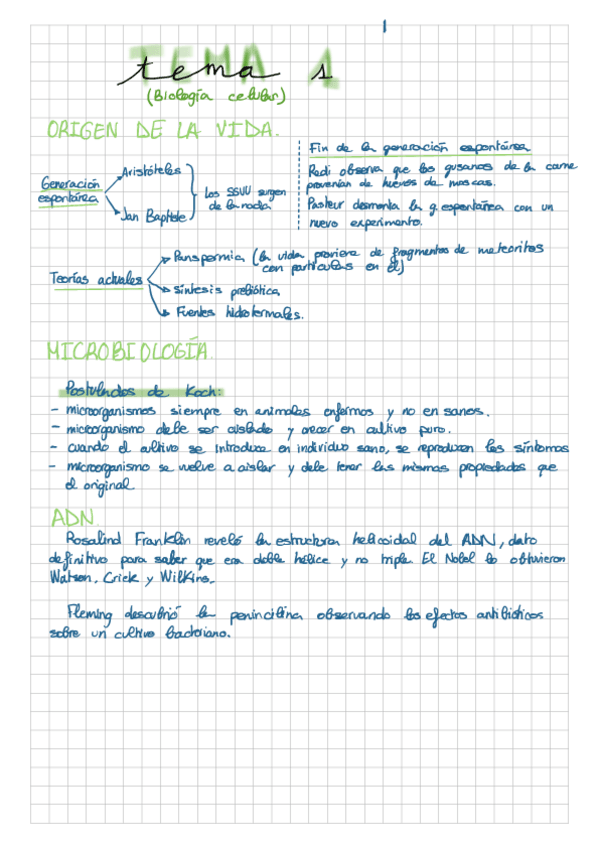 1
tema 1
TEMA 1
(Biología celular)
ORIGEN DE LA VIDA.
Generación
espontánea
Aristóteles
Jan Baptiste
Los SSVV surgen
de la nada
Fin de la generación espontánea
Redi observa que los gusanos de la carne
provenían de huevos de moscas.
Pasteur desmonta la g. espontánea con un
nuevo experimento.
Teorías actuales
Panspermia (la vida proviene de fragmentos de meteoritos
con partículas en él)
Síntesis prebiótica
Fuentes hidrotermales.
MICROBIOLOGÍA.
Postulados de Koch:
- microorganismos siempre en animales enfermos y no en sanos.
- microorganismo debe ser aislado y crecer en cultivo puro.
- cuando el cultivo se introduce en individuo sano, se reproducen los síntomas
- microorganismo se vuelve a aislar y debe tener las mismas propiedades que
el original
ADN
Rosalind Franklin reveló la estructura helicoidal del ADN, dato
definitivo para saber que era doble hélice y no triple. El Nobel lo obtuvieron
Watson, Crick y Wilkins.
Fleming descubrió la penincilina observando los efectos antibióticos
sobre un cultivo bacteriano.